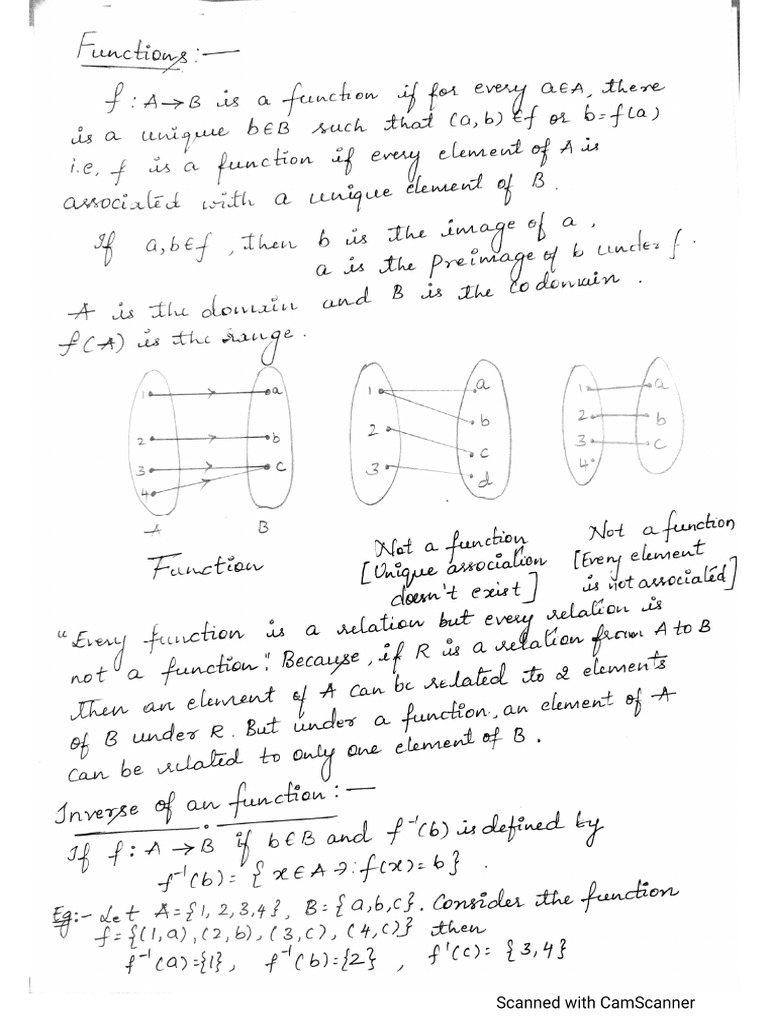 Functions:—
f : A→B is a function if for every a∈A, there
is a unique b∈B such that (a,b)∈f or b=f(a)
i.e, f is a function if every element of A is
associated with a unique element of B.
If a,b∈f, then b is the image of a,
a is the preimage of b under f.
A is the domain and B is the codomain.
f(A) is the range.
1 a 1 a 1 a
2 b 2 b 2 b
3 c 3 c 3 c
4 d 4
A B
Function
Not a function
[Unique association
doesn't exist]
Not a function
[Every element
is not associated]
"Every function is a relation but every relation is
not a function". Because, if R is a relation from A to B
then an element of A can be related to 2 elements
of B under R. But under a function, an element of A
can be related to only one element of B.
Inverse of an function:—
If f : A→B if b∈B and f⁻¹(b) is defined by
f⁻¹(b)= { x∈A ∋: f(x)=b} .
Eg:- Let A={1,2,3,4}, B={a,b,c}. Consider the function
f={(1,a),(2,b),(3,c),(4,c)} then
f⁻¹(a)={1}, f⁻¹(b)={2} , f'(c)= {3,4}
Scanned with CamScanner